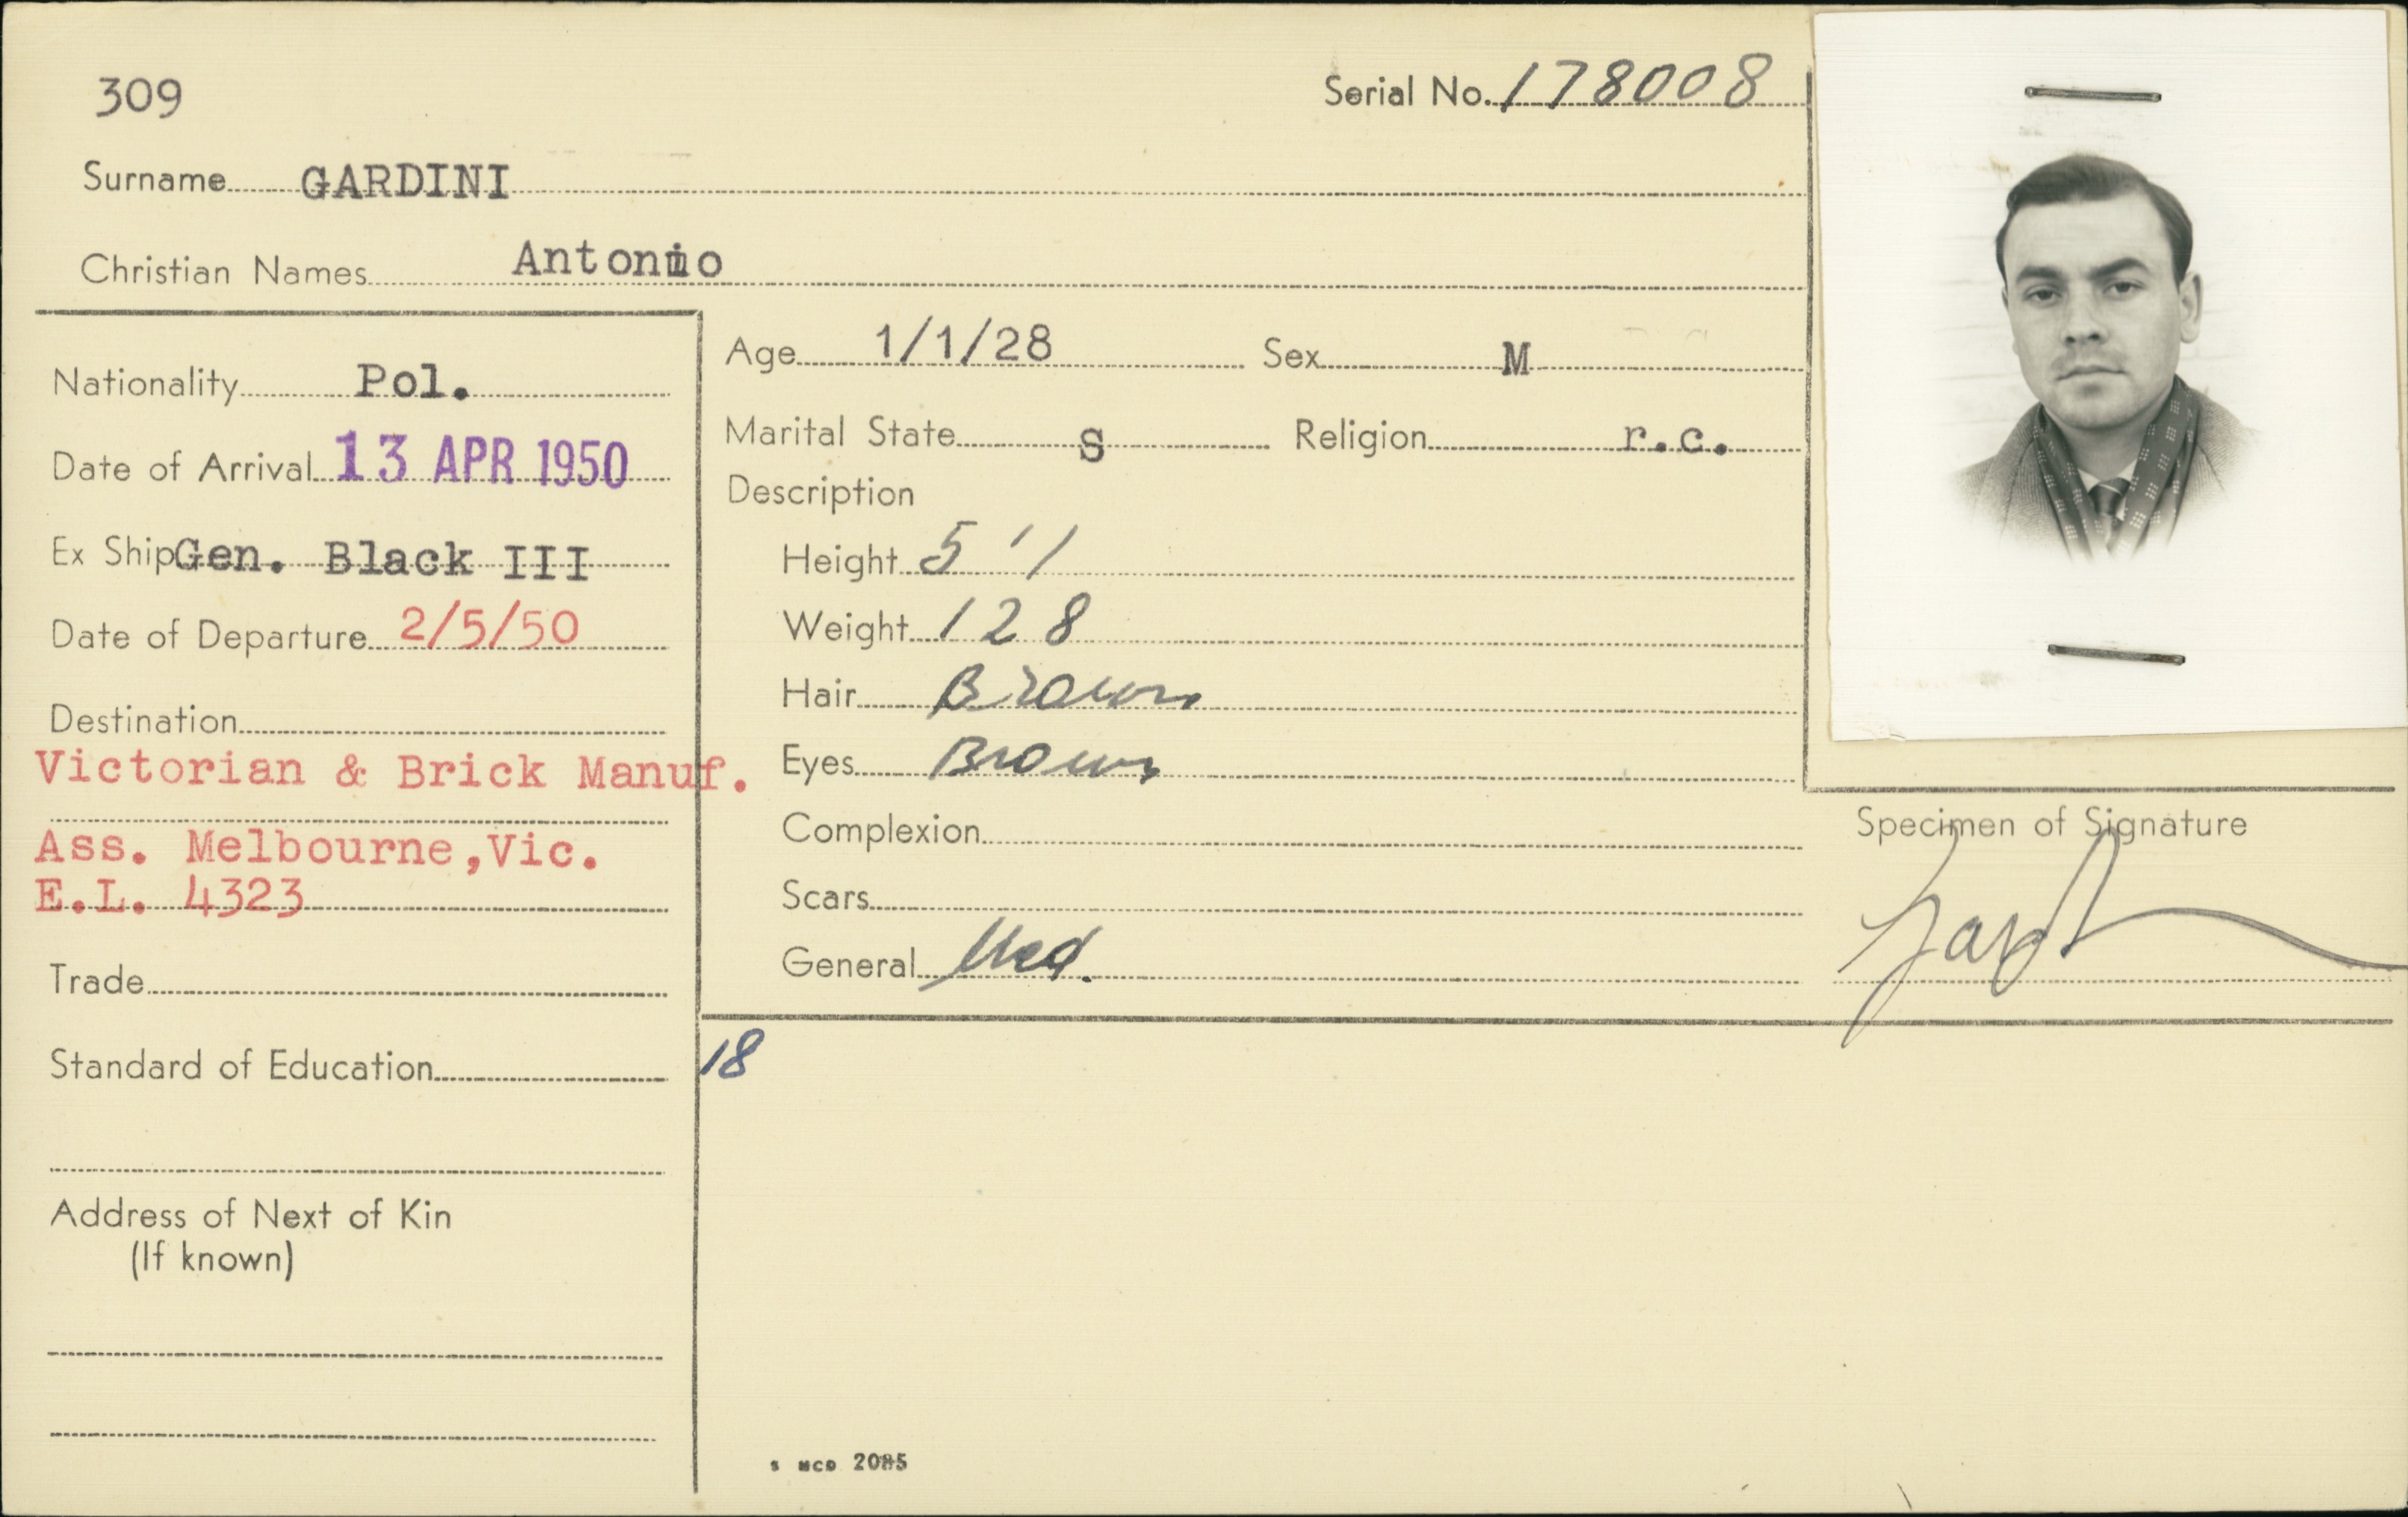 309
Serial No. 178008
Surname GARDINI
Christian Names Antonio
Nationality Pol.
Date of Arrival 13 APR 1950
Ex Ship Gen. Black III
Date of Departure 2/5/50
Destination
Victorian & Brick Manuf.
Ass. Melbourne,Vic.
E.L. 4323
Trade
Standard of Education
Address of Next of Kin
(If known)
Age 1/1/28 Sex M
Marital State S Religion r.c.
Description
Height 5'1
Weight 128
Hair Brown
Eyes Brown
Complexion
Scars
General Med.
18
Specimen of Signature
S MCD 2085